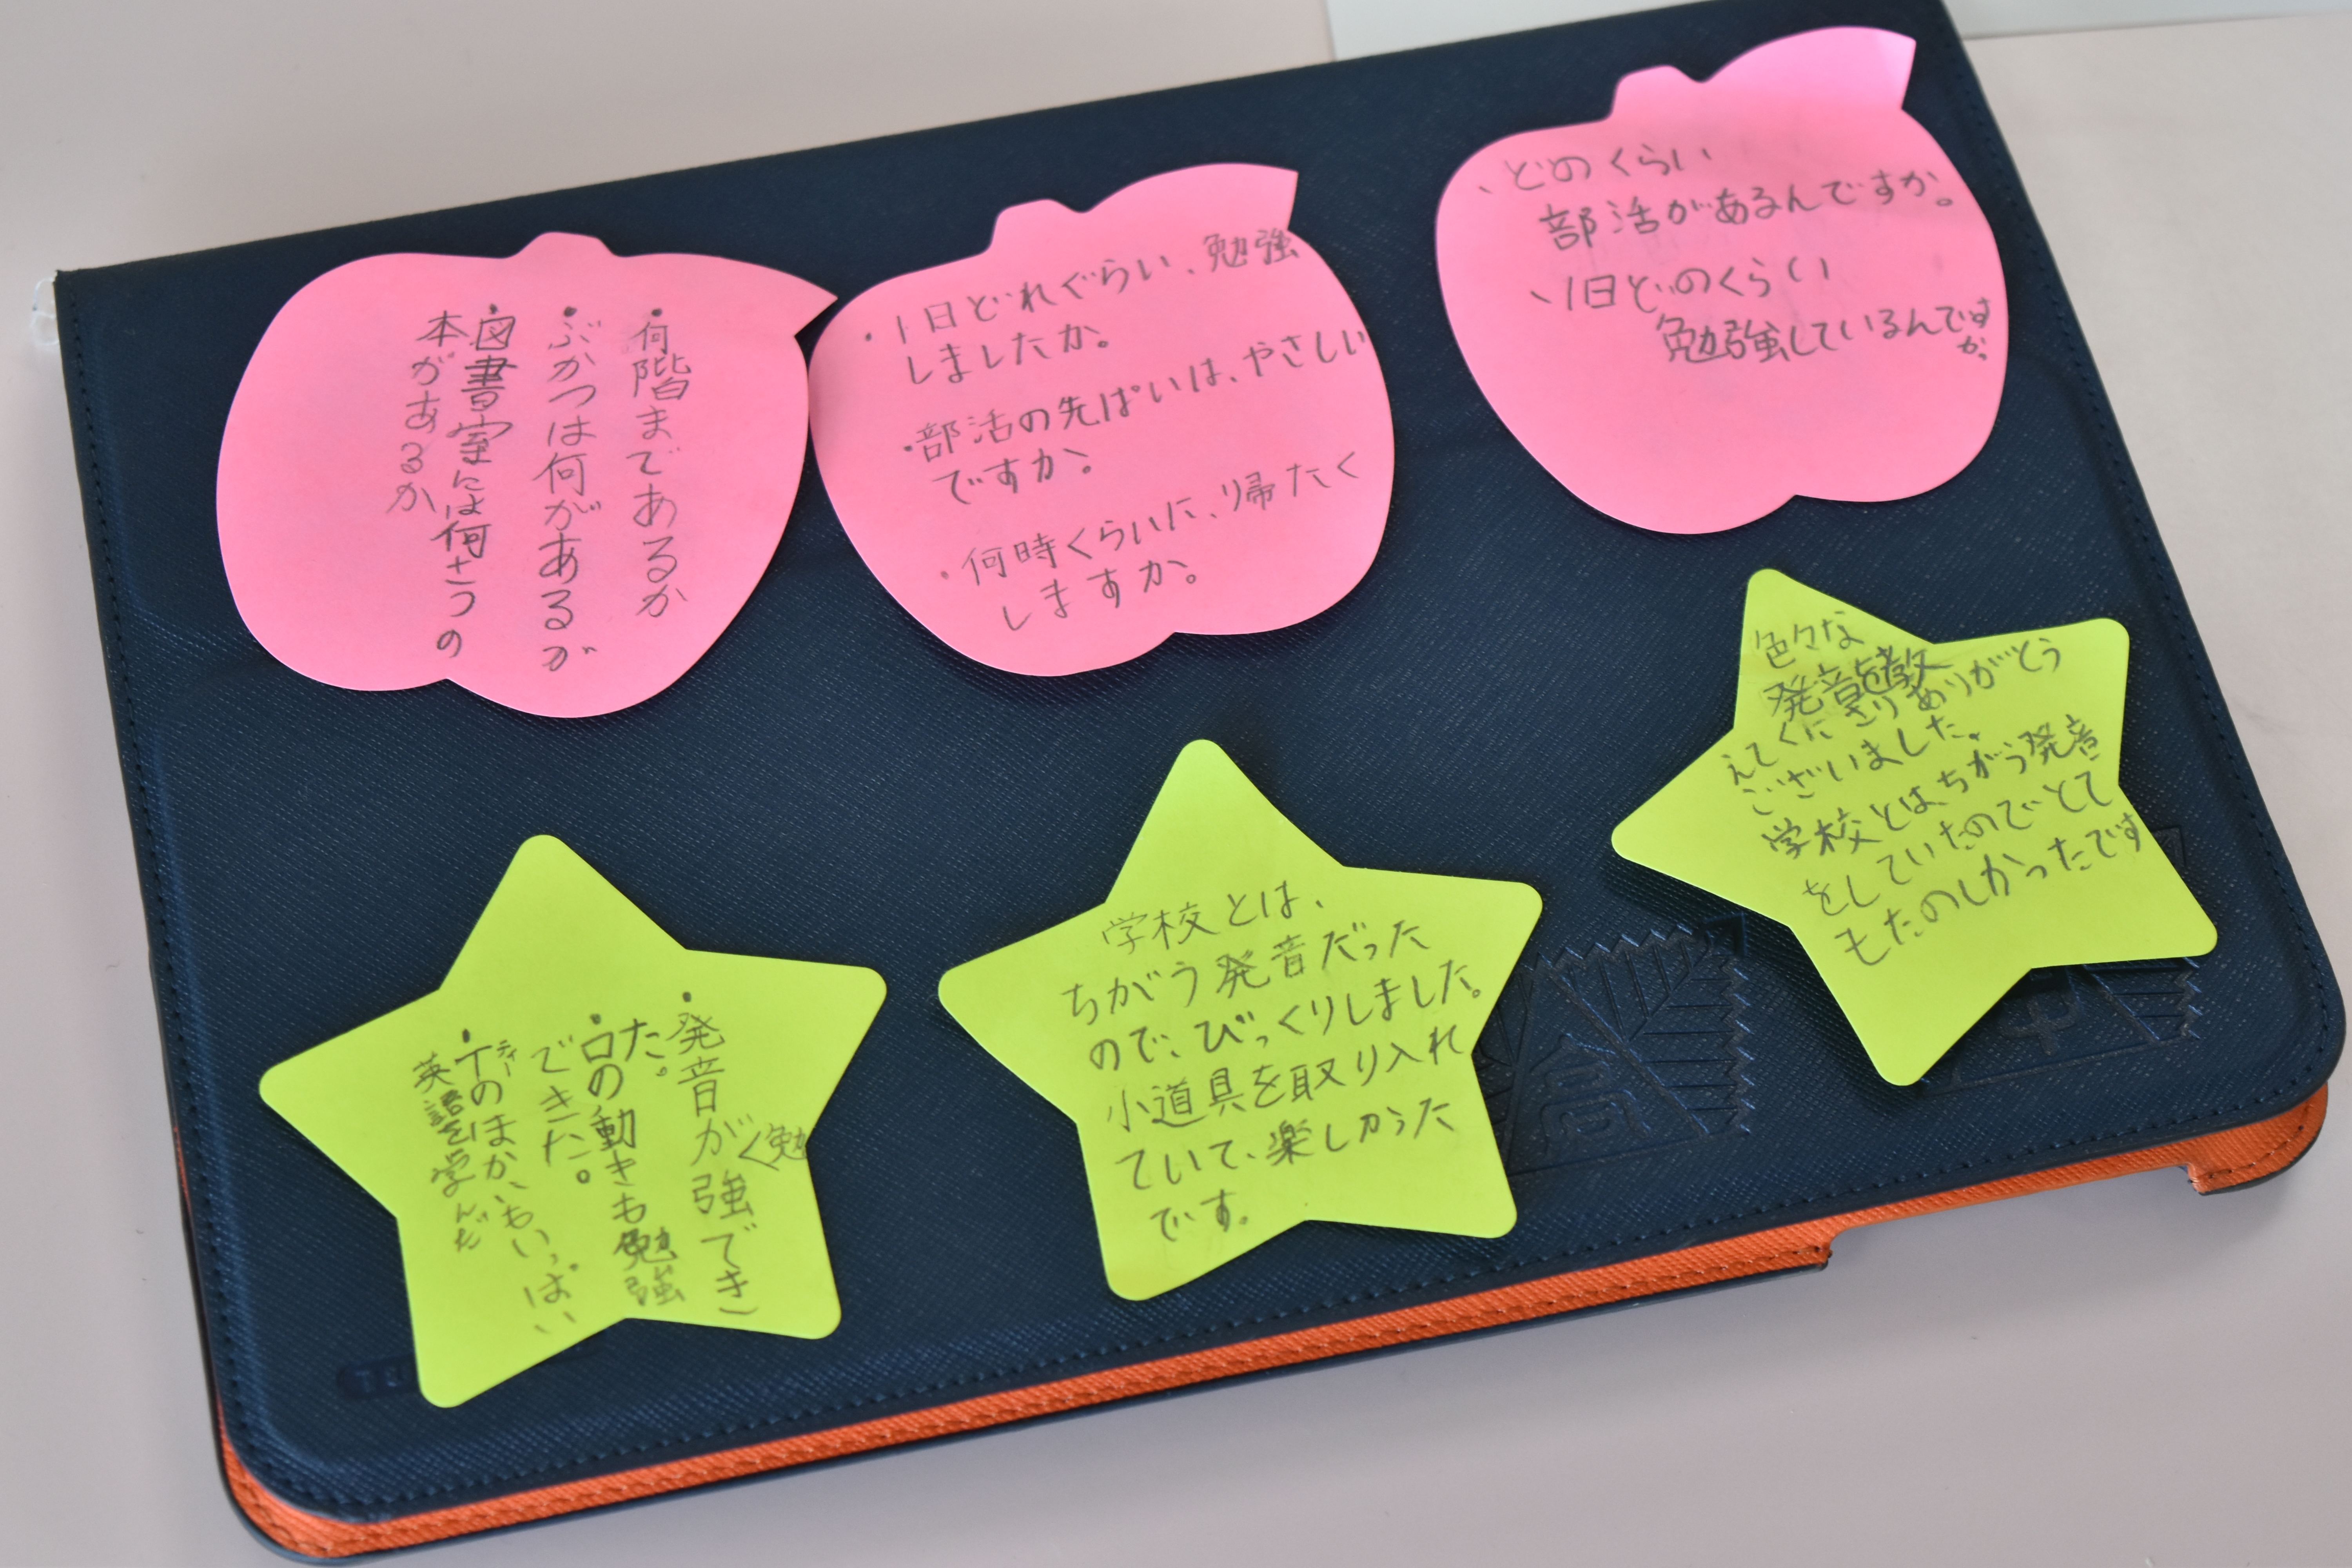 ・何階まであるか
・ぶかつは何があるが
・図書室には何さつの
本があるか
・1日どれぐらい、勉強
しましたか。
・部活の先ぱいは、やさしい
ですか。
・何時くらいに、帰たく
しますか。
、どのくらい
部活があるんですか。
、1日どのくらい
勉強しているんです
か。
・発音が勉強でき
た。
・口の動きも勉強
できた。
・Tのほかいもいっぱい
ティー
英語を学んだ
学校とは、
ちがう発音だった
ので、びっくりしました。
小道具を取り入れ
ていて、楽しかった
です。
色々な
発音を教
えてくださりありがとう
ございました。
学校とは、ちがう発音
をしていたのでとて
もたのしかったです
高
中